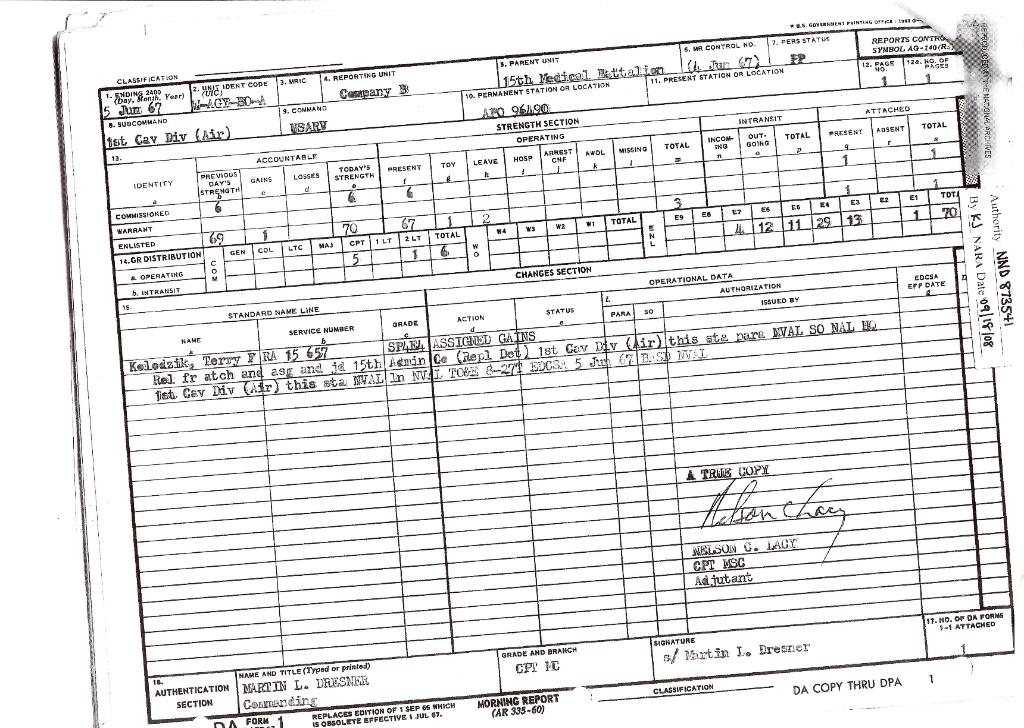 ★ U.S. GOVERNMENT PRINTING OFFICE : 1965
CLASSIFICATION
1. ENDING 2400 (Day, Month, Year)
5 Jun 67
2. UNIT IDENT CODE (UIC)
W-AGY-BO-A
3. MRIC
4. REPORTING UNIT
Company B
5. PARENT UNIT
15th Medical Battalion
6. MR CONTROL NO.
(4 Jun 67)
7. PERS STATUS
PP
REPORTS CONTROL
SYMBOL AG-140(R
8. SUBCOMMAND
1st Cav Div (Air)
9. COMMAND
USARV
10. PERMANENT STATION OR LOCATION
APO 96490
11. PRESENT STATION OR LOCATION
12. PAGE NO.
1
12a. NO. OF PAGES
1
STRENGTH SECTION
13.
ACCOUNTABLE
OPERATING
INTRANSIT
ATTACHED
IDENTITY
a
PREVIOUS DAY'S STRENGTH
b
GAINS
c
LOSSES
d
TODAY'S STRENGTH
e
PRESENT
f
TDY
g
LEAVE
h
HOSP
i
ARREST CNF
j
AWOL
k
MISSING
l
TOTAL
m
INCOM-ING
n
OUT-GOING
o
TOTAL
p
PRESENT
q
ABSENT
r
TOTAL
s
COMMISSIONED
6 6 6 1 1
WARRANT
ENLISTED
69 1 70 67 1 2 3 1 1
14. GR DISTRIBUTION
COM
GEN COL LTC MAJ CPT 1 LT 2 LT TOTAL
WO
W4 W3 W2 W1 TOTAL
ENL
E9 E8 E7 E6 E5 E4 E3 E2 E1 TOTAL
a. OPERATING
5 1 6 4 12 11 29 13 1 70
b. INTRANSIT
CHANGES SECTION
15.
STANDARD NAME LINE
OPERATIONAL DATA
NAME
a
SERVICE NUMBER
b
GRADE
c
ACTION
d
STATUS
e
f.
AUTHORIZATION
PARA
SO
ISSUED BY
EDCSA EFF DATE
g
ASSIGNED GAINS
Kolodzik, Terry F RA 15 657 SP4E4
Rel fr atch and asg and jd 15th Admin Co (Repl Det) 1st Cav Div (Air) this sta para NVAL SO NAL HQ
1st Cav Div (Air) this sta NVAL In NVAL TO&E 8-27T EDCSA 5 Jun 67 BASD NVAL
A TRUE COPY
Nelson C Lacy
NELSON C. LACY
CPT MSC
Adjutant
16.
AUTHENTICATION SECTION
NAME AND TITLE (Typed or printed)
MARTIN L. DRESNER
Commanding
GRADE AND BRANCH
CPT MC
SIGNATURE
s/ Martin L. Dresner
17. NO. OF DA FORMS 1-1 ATTACHED
1
DA FORM 1
REPLACES EDITION OF 1 SEP 66 WHICH IS OBSOLETE EFFECTIVE 1 JUL 67.
MORNING REPORT
(AR 335-60)
CLASSIFICATION
DA COPY THRU DPA 1
REPRODUCED AT THE NATIONAL ARCHIVES
Authority NND 873541
By KJ NARA Date 09/18/08